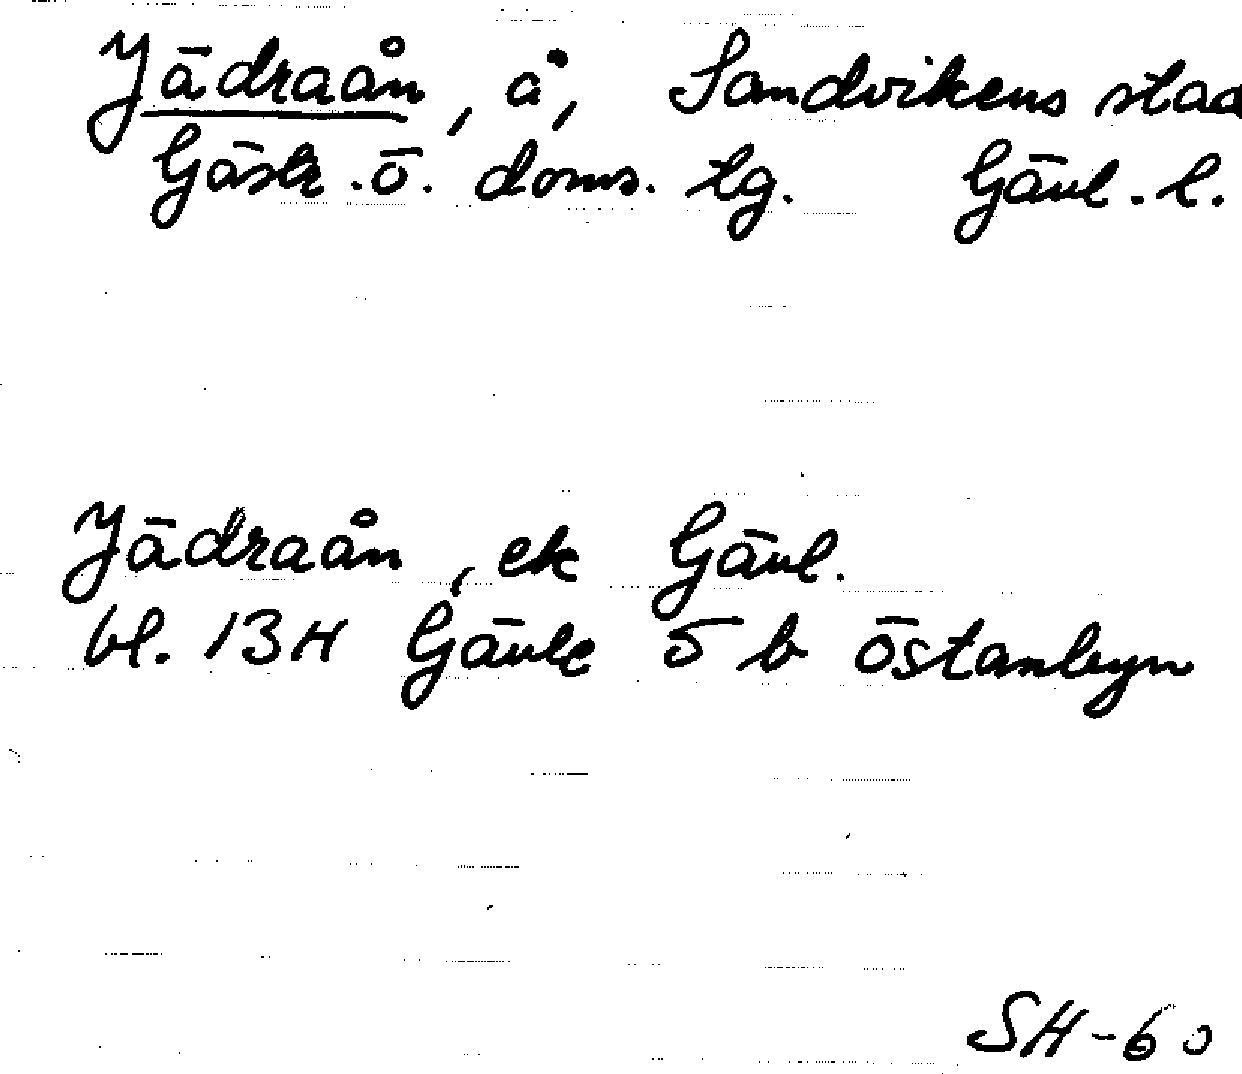 Jädraån, å, Sandvikens staa
Gästr. ö. doms. tg. Gävl. l.
Jädraån, ek Gävl.
bl. 13H Gävle 5 b Östanbyn
SH-60